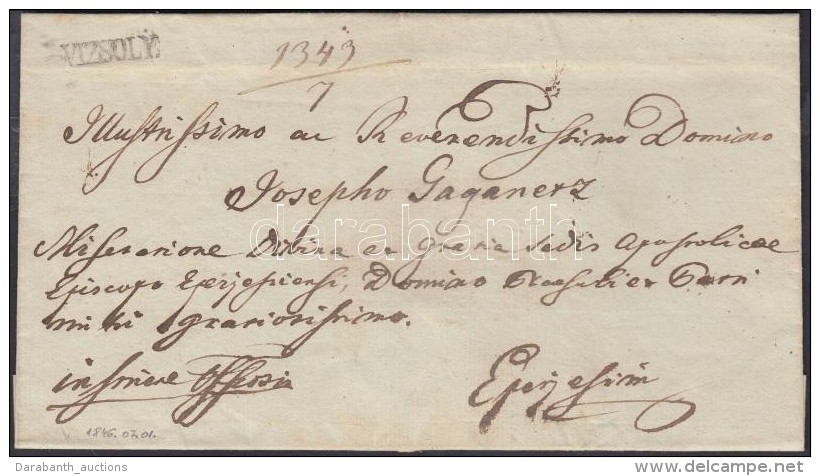 VIZSOLY.
1343
7
Illustrissimo ac Reverendissimo Domino
Josepho Gaganetz
Miseratione Divina et gratia Sedis Apostolicae
Episcopo Eperjesiensi, Domino Praesuli et Patri
mihi gratiosissimo.
Eperjesini
1846. 07. 01.
darabanth
Darabanth_auctions
www.delcampe.net